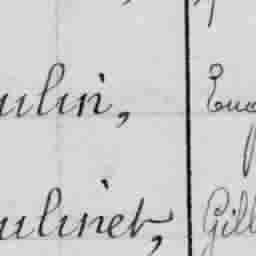 ulin, Eug
ulinet, Gill